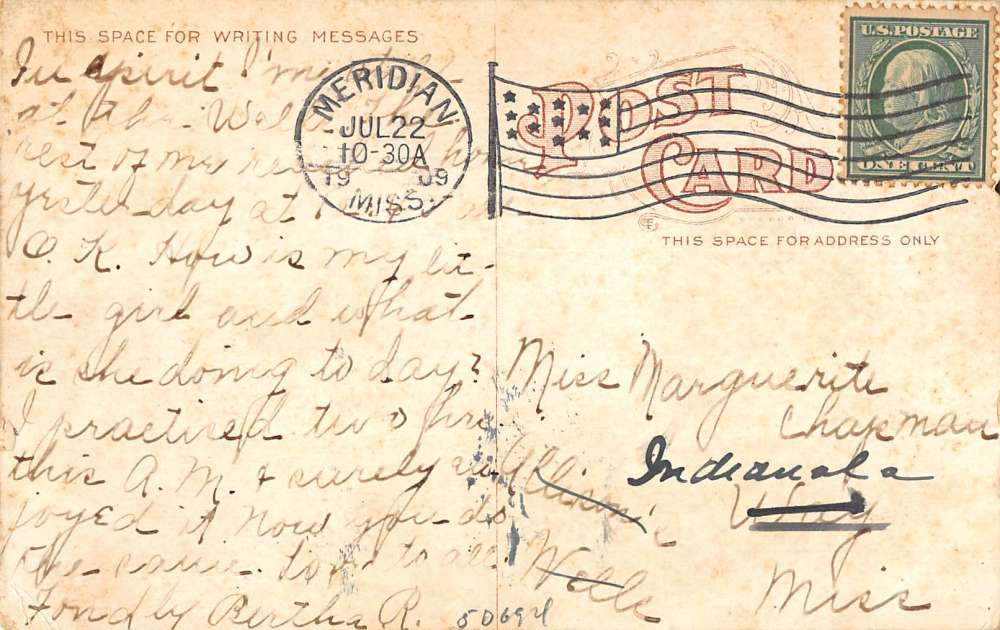 THIS SPACE FOR WRITING MESSAGES
In spirit I'm
at the Wells. The
rest of my home
yesterday at
O. K. How is my lit-
tle girl and what
is she doing to day?
I practised two hrs.
this A. M. & surely en-
joyed it now you do
the same. love to all.
Fondly Bertha R.
50694
MERIDIAN
JUL 22
10-30A
1909
MISS.
POST
CARD
U.S. POSTAGE
ONE CENT
THIS SPACE FOR ADDRESS ONLY
Miss Marguerite
Chapman
Indianola
Way
Wells
Miss